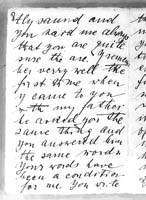 My sound and
You have me always
that you are quite
sure the are. I remember
her very well the
first time when
y came to you
my father
be asked for the
same thing and
you answered him
the same words
Your words have
been a condition
for me. You write